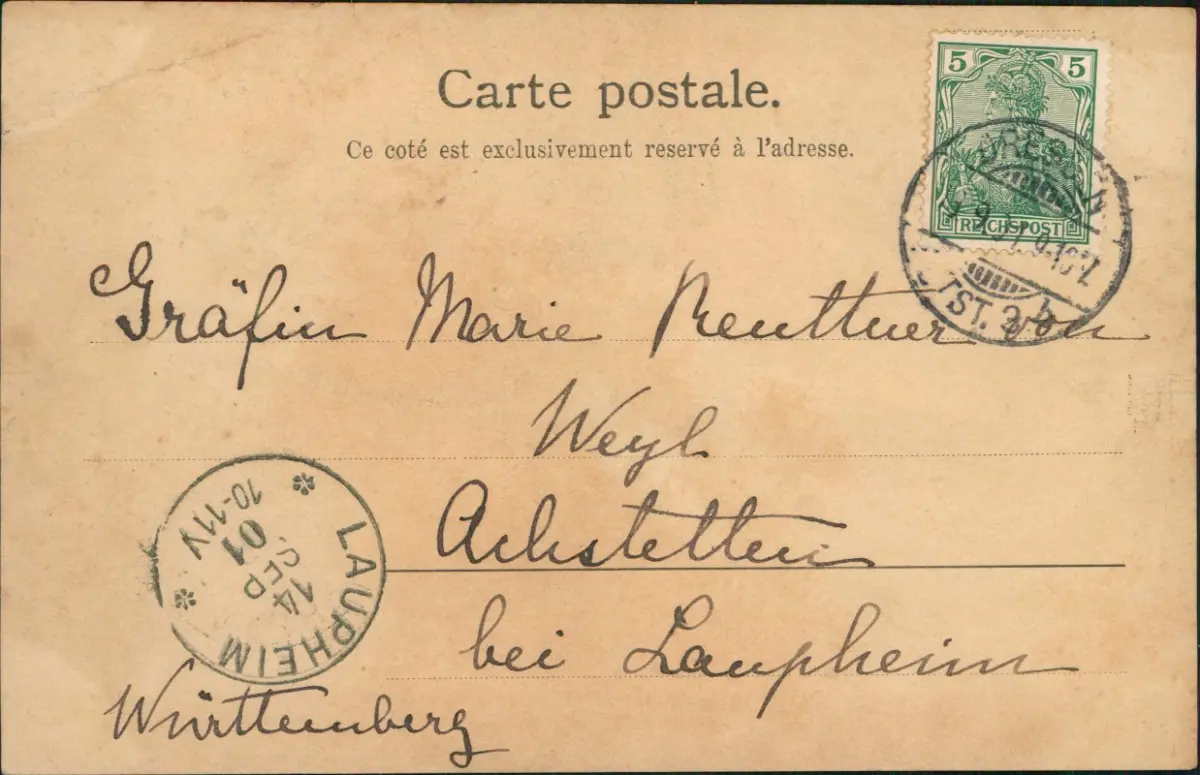 Carte postale.
Ce coté est exclusivement reservé à l'adresse.
5 5
REICHSPOST
DRESDEN
TST. 2 b
Gräfin Marie Reuttner von
Weyl
Achstetten
bei Laupheim
Württemberg
LAUPHEIM
14
SEP
01
10-11V